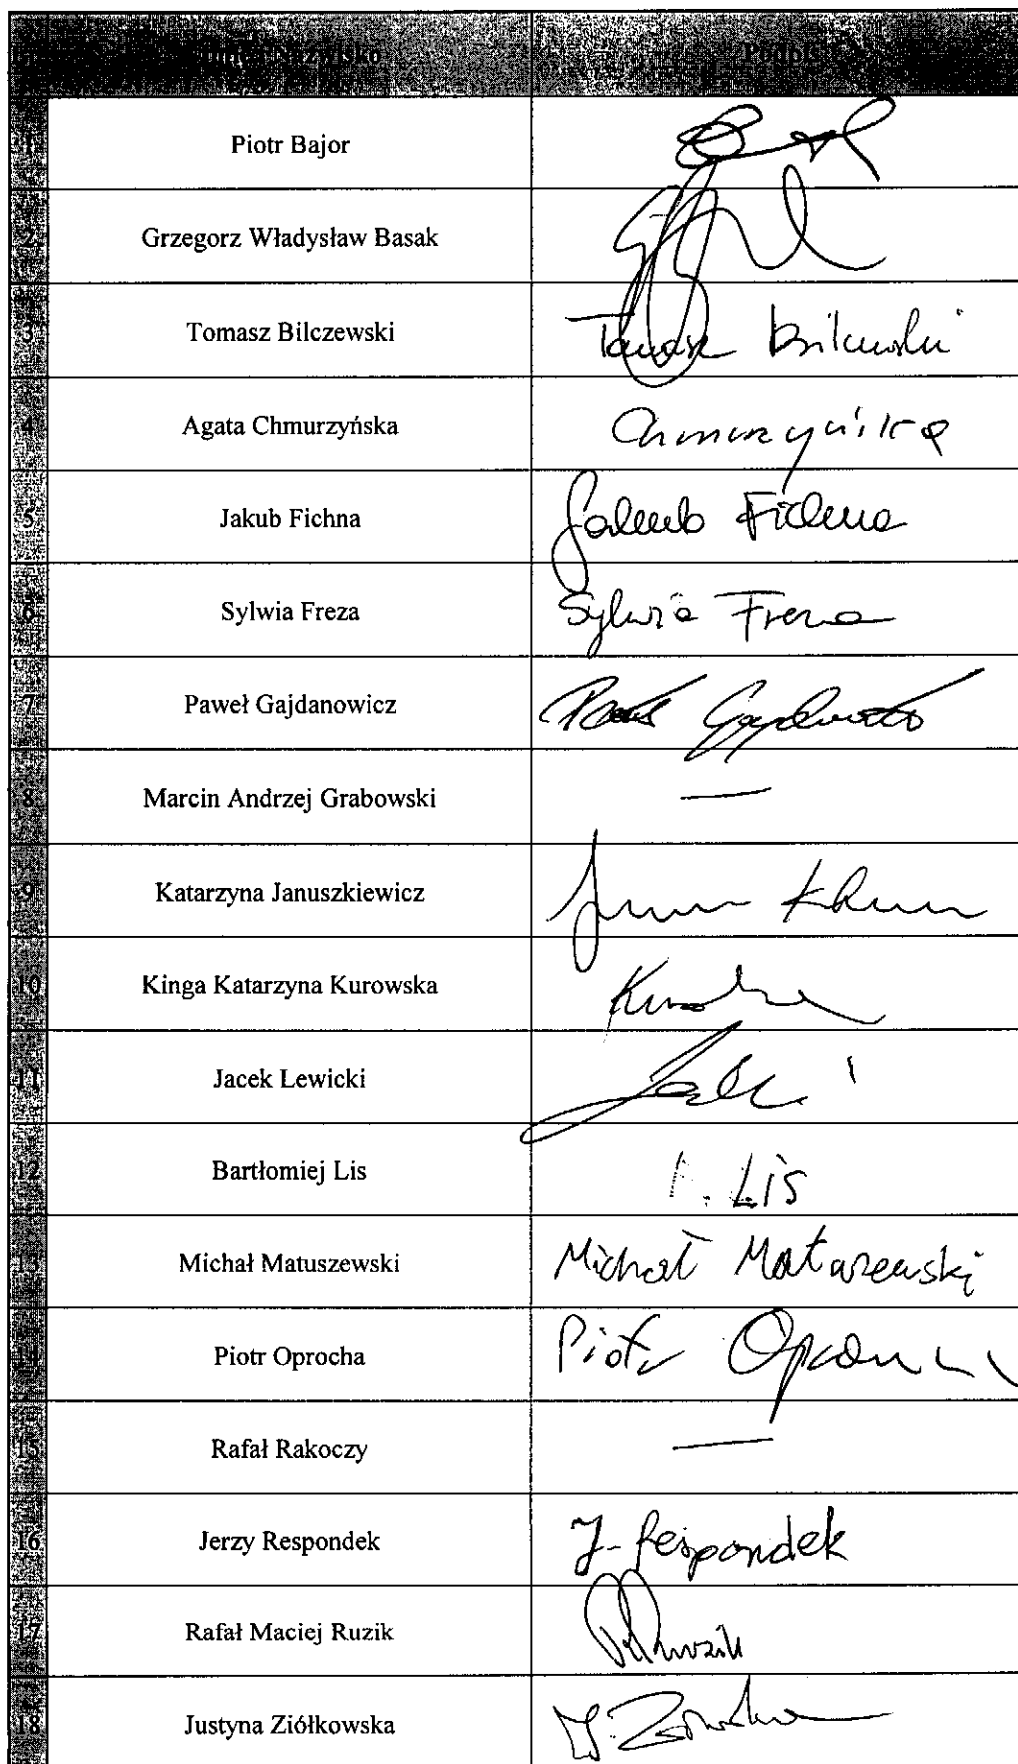 Imię i Nazwisko Podpis
1 Piotr Bajor
2 Grzegorz Władysław Basak
3 Tomasz Bilczewski Tomasz Bilczewski
4 Agata Chmurzyńska Chmurzyńska
5 Jakub Fichna Jakub Fichna
6 Sylwia Freza Sylwia Freza
7 Paweł Gajdanowicz
8 Marcin Andrzej Grabowski —
9 Katarzyna Januszkiewicz
10 Kinga Katarzyna Kurowska
11 Jacek Lewicki
12 Bartłomiej Lis Lis
13 Michał Matuszewski Michał Matuszewski
14 Piotr Oprocha Piotr
15 Rafał Rakoczy —
16 Jerzy Respondek J. Respondek
17 Rafał Maciej Ruzik
18 Justyna Ziółkowska